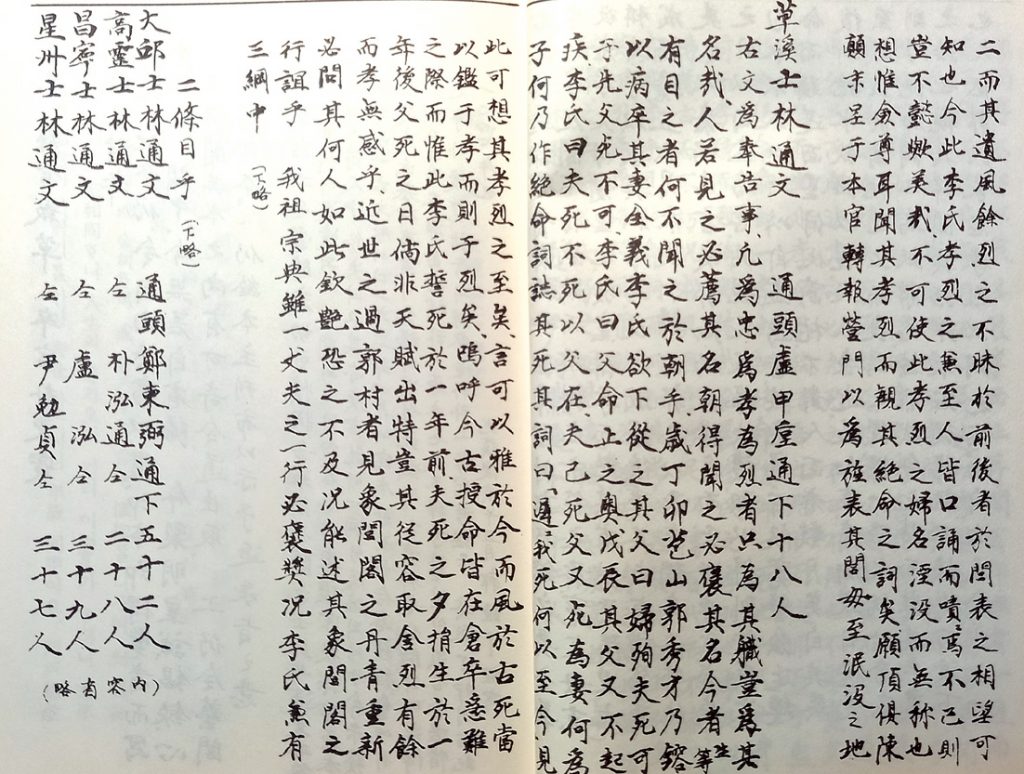 二而其遺風餘烈之不昧於前後者於閭表之相望可
知也今此李氏孝烈之兼至人皆口誦而嘖焉不已則
豈不懿歟美哉不可使此孝烈之婦名湮没而無称也
想惟僉尊耳聞其孝烈而觀其絶命之詞矣願頂俱陳
顛末呈于本官轉報營門以為旌表其閭毋至泯没之地
草溪士林通文 通頭盧甲 通下十八人
右文為奉告事凡為忠為孝為烈者只為其職豈為其
名哉人若見之必薦其名朝得聞之必褒其名今者生等
有目之者何不聞之於朝乎歲丁卯苞山郭秀才乃鎔
以病卒其妻全義李氏欲下從之其父曰婦殉夫死可
乎先父死不可李氏曰父命止之奥戊辰其父又不起
疾李氏曰夫死不死以父在夫已死父又死為妻何為
子何乃作絶命詞誌其死其詞曰遲我死何以至今見
此可想其孝烈之至矣言可以雅於今而風於古死當
以鑑于孝而則于烈矣嗚呼今古授命皆在倉卒患難
之際而惟此李氏誓死於一年前夫死之夕捐生於一
年後父死之日倘非天賦出特豈其從容取舍烈有餘
而孝無感乎近世之過郭村者見象閭閤之丹青重新
必問其何人如此欽艶恐之不及况能述其象閭閤之
行誼乎 我祖宗典雖一丈夫之一行必褒奬况李氏兼有
三綱中 (下略)
二條目乎 (下略)
大邱士林通文 通頭鄭東弼通下五十二人
高靈士林通文 仝 朴泓通仝 二十八人
昌寧士林通文 仝 盧泓仝 三十九人
星州士林通文 仝 尹勉貞仝 三十七人
(略省容内)